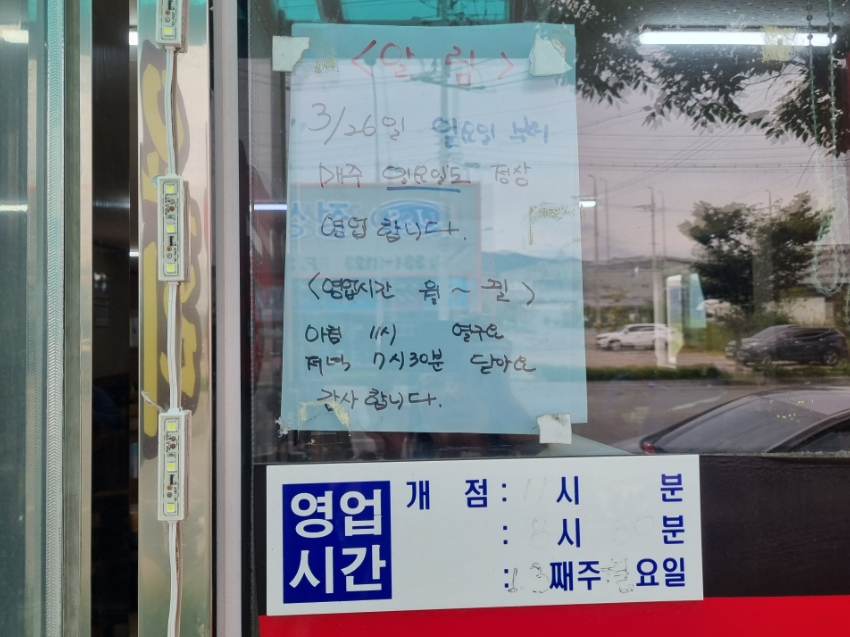 < 알 림 >
3/26일 일요일 부터
매주 일요일도 정상
영업 합니다.
<영업시간 월 ~ 일>
아침 11시 열구요
저녁 7시30분 닫아요
감사 합니다.
영업시간
개 점 : 11시 분
: 시 분
: 1.3째주 월요일